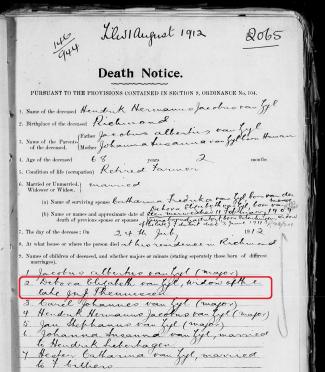 Filed 1 August 1912
2065
146/944
Death Notice.
PURSUANT TO THE PROVISIONS CONTAINED IN SECTION 9, ORDINANCE No. 104.
1. Name of the deceased Hendrik Hermanus Jacobus van Zyl
2. Birthplace of the deceased Richmond
3. Names of the Parents of the deceased Father Jacobus Albertus van Zyl
Mother Johanna Susanna van Zyl born
4. Age of the deceased 68 years 2 months
5. Condition of life (occupation) Retired Farmer
6. Married or Unmarried, Widower or Widow. married
(a) Name of surviving spouse Catharina Fredrika van Zyl born van der
(b) Name or names and approximate date of death of previous spouse or spouses Debora Elizabeth van Zyl born
11 February 1909
7. The day of the decease: On 24th July 1912
8. At what house or where the person died at his residence in Richmond
9. Names of children of deceased, and whether majors or minors (stating separately those born of different marriages).
1 Jacobus Albertus van Zyl (major)
2 Debora Elizabeth van Zyl, widow of the
late
3 Carel Johannes van Zyl (major)
4 Hendrik Hermanus Jacobus van Zyl (major)
5 Jan Stephanus van Zyl (major)
6 Johanna Susanna van Zyl, married
to Hendrik Liebenhagen
7 Hester Catharina van Zyl, married
to